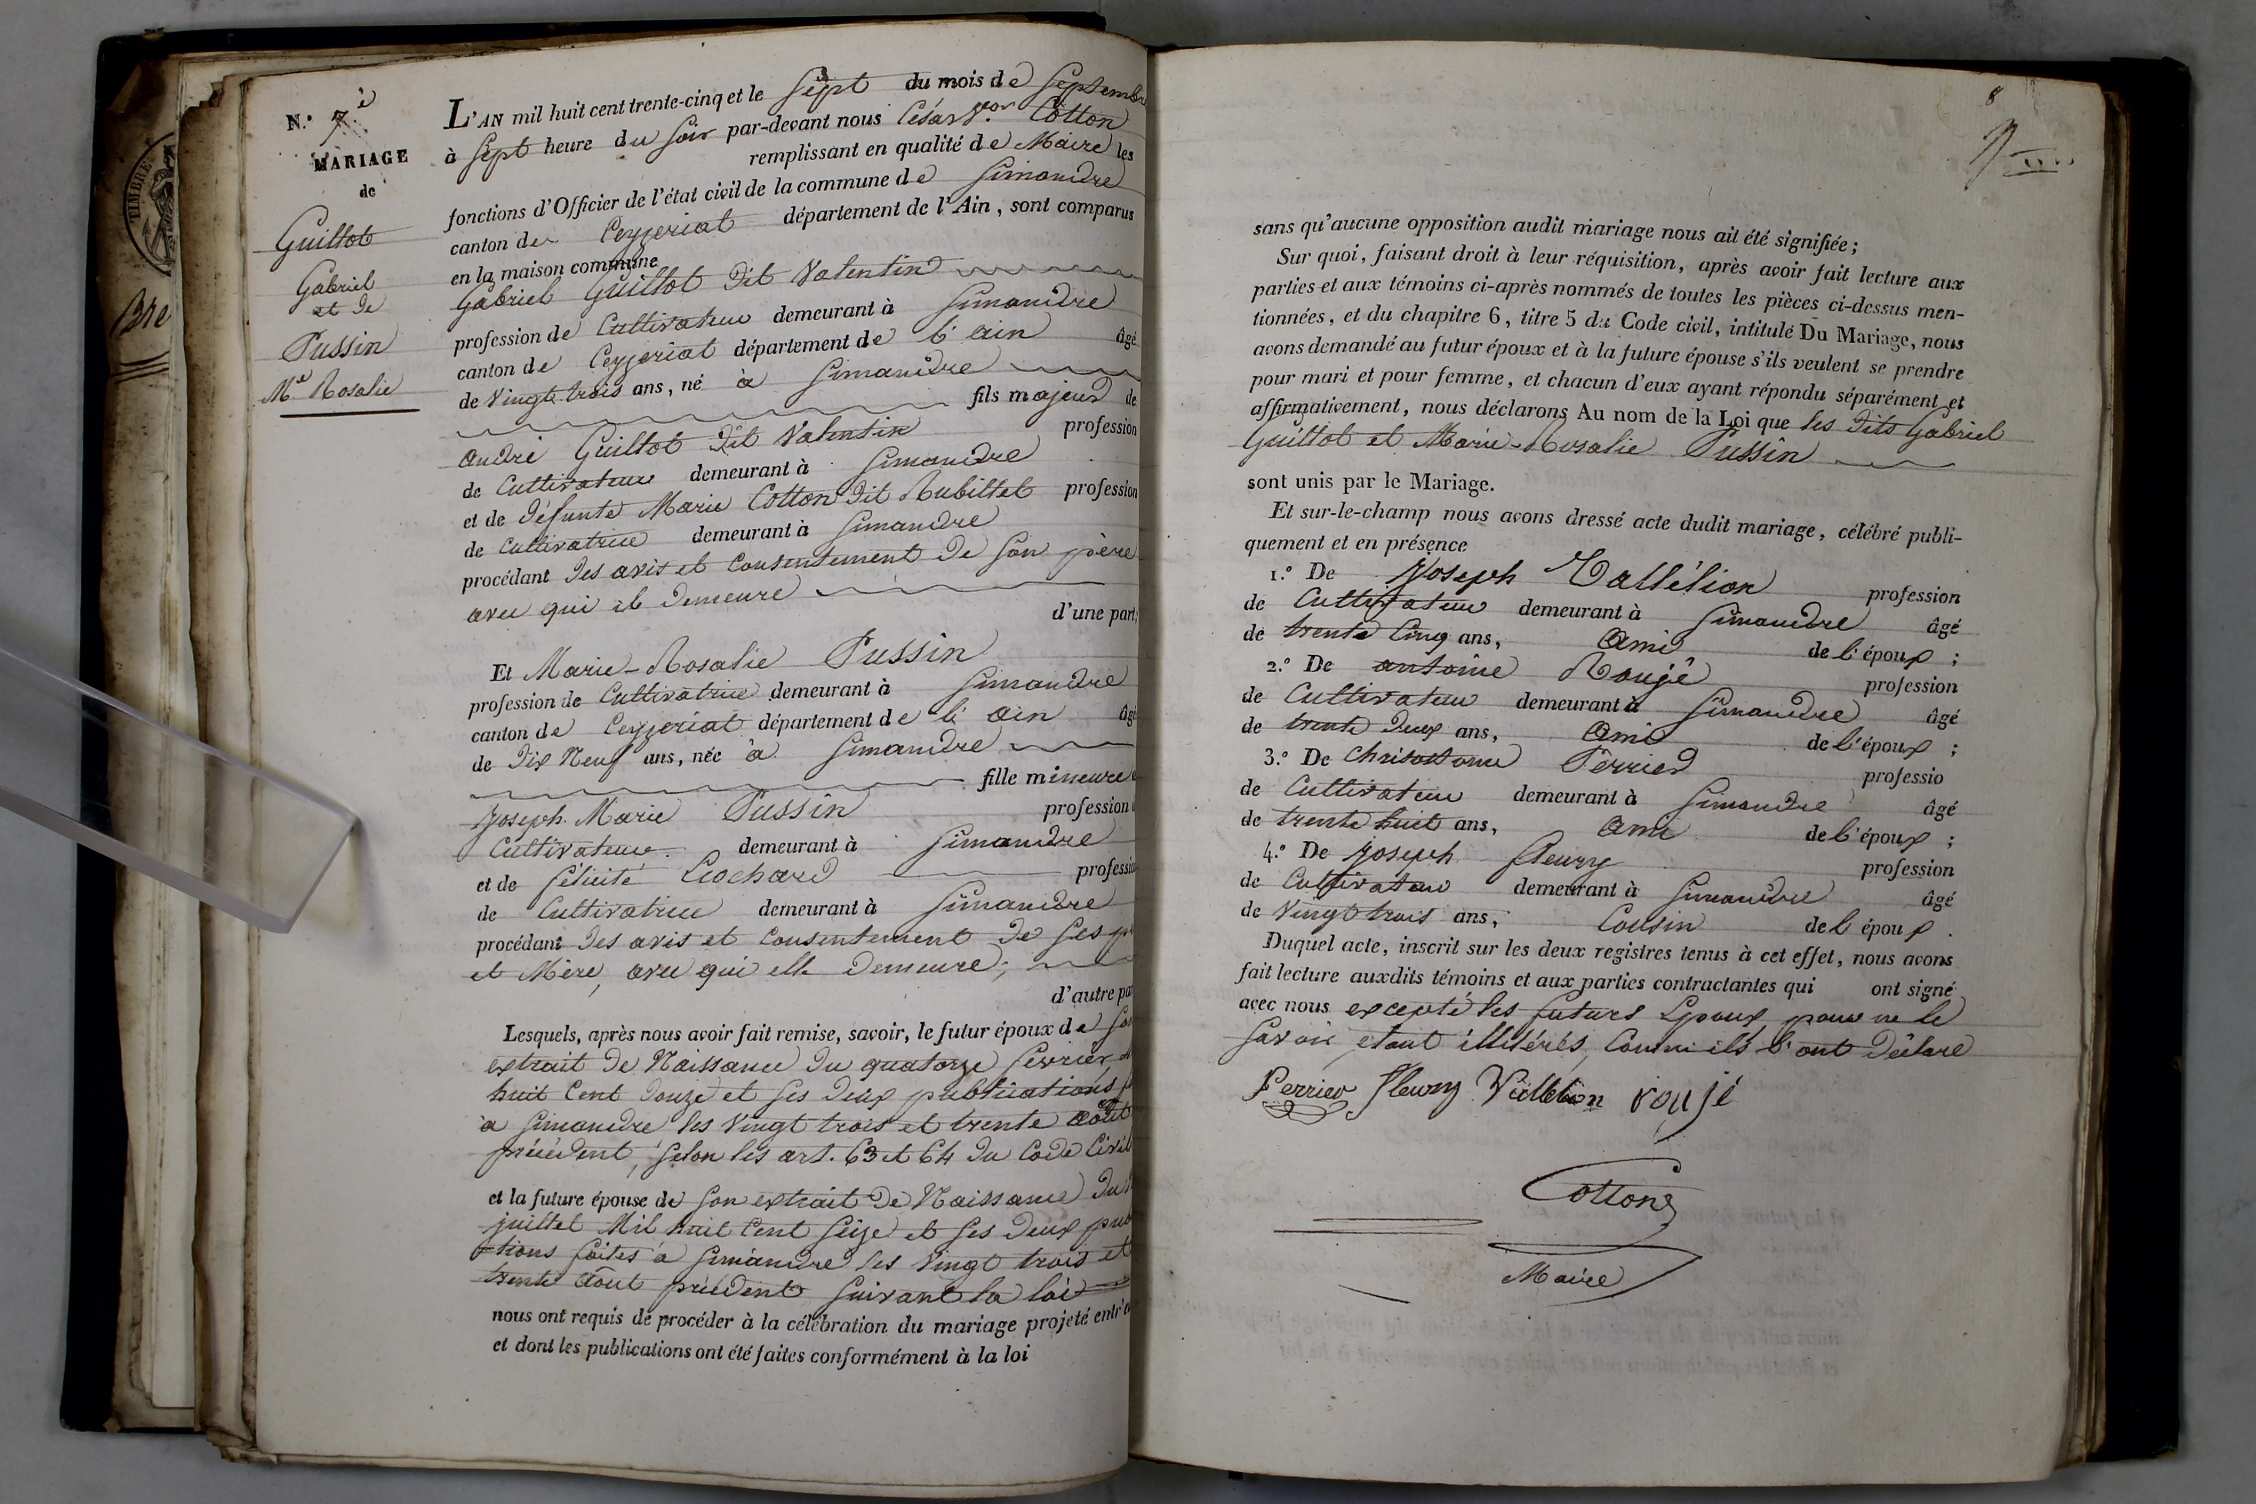 TIMBRE
Bre
N.° 7e
MARIAGE
de
Guillot
Gabriel
et de
Pussin
Me Rosalie
L'AN mil huit cent trente-cinq et le Sept du mois de Septembre
à Sept heure du Soir par-devant nous César Vor Cotton
remplissant en qualité de Maire les
fonctions d'Officier de l'état civil de la commune de Simandre
canton de Ceyzeriat département de l'Ain, sont comparus
en la maison commune
Gabriel Guillot dit Valentin
profession de Cultivateur demeurant à Simandre
canton de Ceyzeriat département de l'ain âgé
de Vingt trois ans, né à Simandre
fils majeur de
André Guillot dit Valentin profession
de Cultivateur demeurant à Simandre
et de défunte Marie Cotton dit Rubillet profession
de Cultivatrice demeurant à Simandre
procédant des avis et Consentement de Son père
avec qui il demeure
d'une part;
Et Marie-Rosalie Pussin
profession de Cultivatrice demeurant à Simandre
canton de Ceyzeriat département de l'ain âgé
de Dix Neuf ans, née à Simandre
fille mineure
Joseph Marie Pussin profession
Cultivateur demeurant à Simandre
et de félicité Lochard profession
de Cultivatrice demeurant à Simandre
procédant des avis et Consentement de Ses
et Mère, avec qui elle demeure;
d'autre par
Lesquels, après nous avoir fait remise, savoir, le futur époux de Son
extrait de Naissance du quatorze février
huit Cent douze et Ses deux publications
à Simandre les Vingt trois et trente août
précédent, Selon les art. 63 et 64 du Code Civil
et la future épouse de Son extrait de Naissance du
juillet Mil huit Cent Seize et Ses deux pub
tions faites à Simandre les Vingt trois et
trente août précédent Suivant la loi
nous ont requis de procéder à la célébration du mariage projeté entr'e
et dont les publications ont été faites conformément à la loi
8
sans qu'aucune opposition audit mariage nous ait été signifiée;
Sur quoi, faisant droit à leur réquisition, après avoir fait lecture aux
parties et aux témoins ci-après nommés de toutes les pièces ci-dessus men-
tionnées, et du chapitre 6, titre 5 du Code civil, intitulé Du Mariage, nous
avons demandé au futur époux et à la future épouse s'ils veulent se prendre
pour mari et pour femme, et chacun d'eux ayant répondu séparément et
affirmativement, nous déclarons Au nom de la Loi que les dits Gabriel
Guillot et Marie-Rosalie Pussin
sont unis par le Mariage.
Et sur-le-champ nous avons dressé acte dudit mariage, célébré publi-
quement et en présence
1.° De Joseph profession
de Cultivateur demeurant à Simandre âgé
de trente Cinq ans, Ami de l'époux ;
2.° De antoine Roujé profession
de Cultivateur demeurant à Simandre âgé
de trente deux ans, Ami de l'époux ;
3.° De Chrisostome Perrier professio
de Cultivateur demeurant à Simandre âgé
de trente huit ans, Ami de l'époux ;
4.° De Joseph fleury profession
de Cultivateur demeurant à Simandre âgé
de Vingt trois ans, Cousin de l'époux.
Duquel acte, inscrit sur les deux registres tenus à cet effet, nous avons
fait lecture auxdits témoins et aux parties contractantes qui ont signé
avec nous excepté les futurs Epoux pour ne le
Savoir étant illitérés, Comme ils l'ont déclaré
Perrier fleury roujé
Cotton
Maire